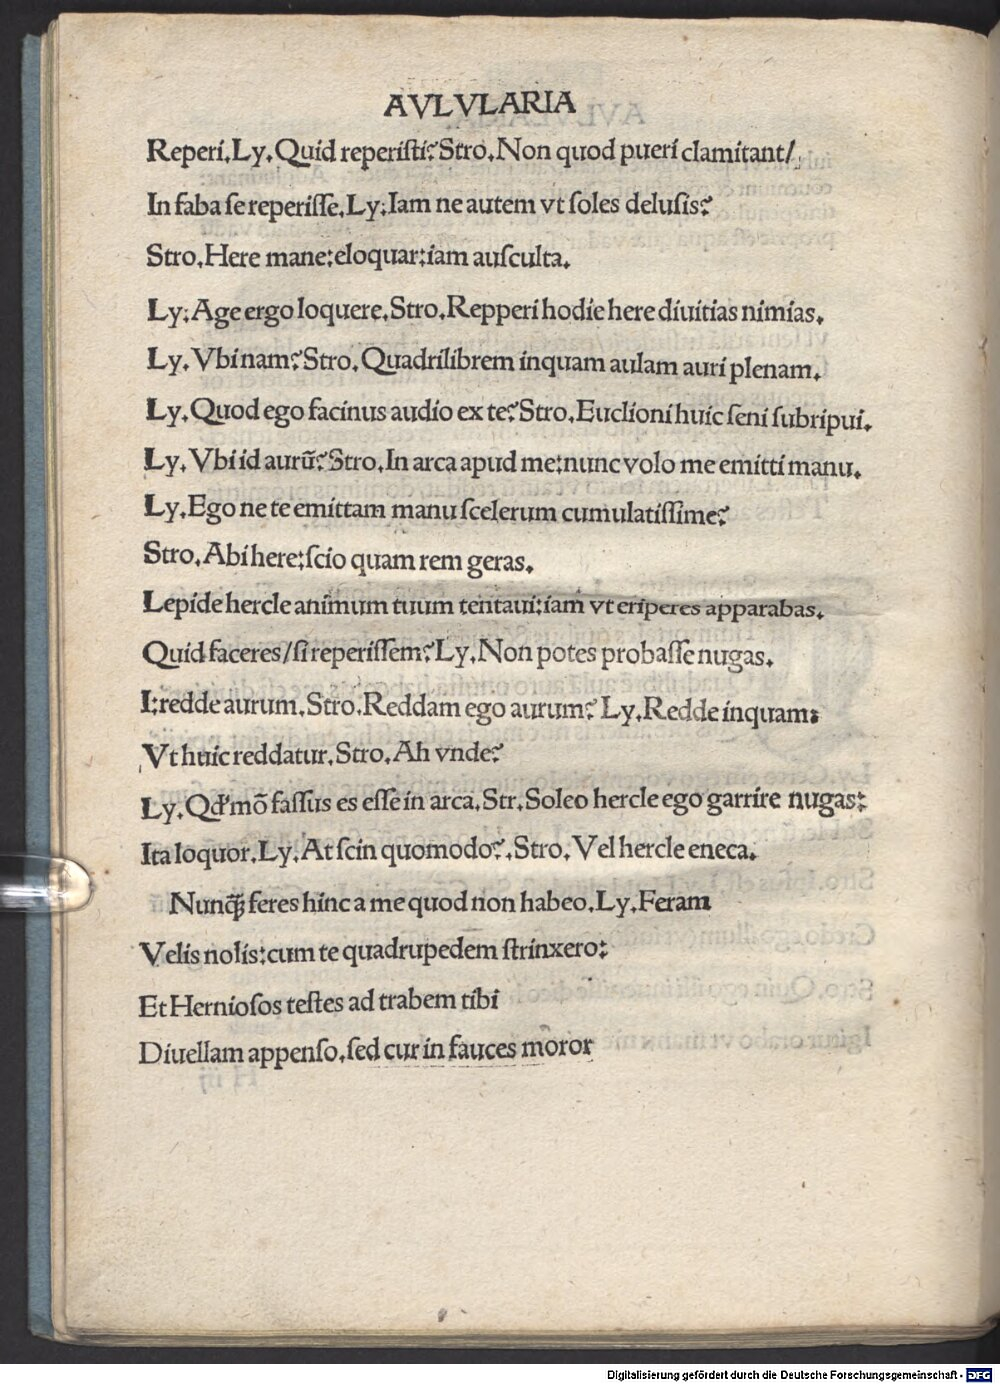 AVLVLARIA
Reperi.Ly.Quid reperiſti?Stro.Non quod pueri clamitant/
In faba ſe reperiſſe.Ly:Iam ne autem vt ſoles deluſis?
Stro.Here mane:eloquar:iam auſculta.
Ly:Age ergo loquere.Stro.Repperi hodie here diuitias nimias.
Ly.Vbi nam?Stro.Quadrilibrem inquam aulam auri plenam.
Ly.Quod ego facinus audio ex te?Stro.Euclioni huic ſeni ſubripui.
Ly.Vbi id aurū?Stro.In arca apud me:nunc volo me emitti manu.
Ly.Ego ne te emittam manu ſcelerum cumulatiſſime?
Stro.Abi here:ſcio quam rem geras.
Lepide hercle animum tuum tentaui:iam vt eriperes apparabas.
Quid faceres/ſi reperiſſem?Ly.Non potes probaſſe nugas.
I:redde aurum.Stro.Reddam ego aurum? Ly.Redde inquam:
Vt huic reddatur.Stro.Ah vnde?
Ly.Qď mō faſſus es eſſe in arca.Str.Soleo hercle ego garrire nugas:
Ita loquor.Ly.At ſcin quomodo?.Stro.Vel hercle eneca.
Nunq̄ feres hinc a me quod non habeo.Ly.Feram
Velis nolis:cum te quadrupedem ſtrinxero:
Et Hernioſos teſtes ad trabem tibi
Diuellam appenſo.ſed cur in fauces moror
Digitalisierung gefördert durch die Deutsche Forschungsgemeinschaft - DFG